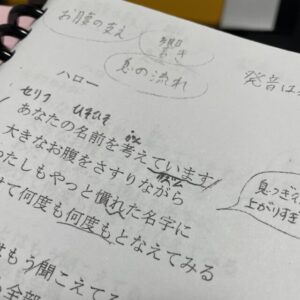 お腹の支え
響き
息の流れ
発音は
ハロー
セリフ ひそひそ
あなたの名前を考えています
大きなお腹をさすりながら
たしもやっと慣れた名字に
せて何度も何度もとなえてみる
はもう聞こえてる
全部
息つぎ
上がりすぎ